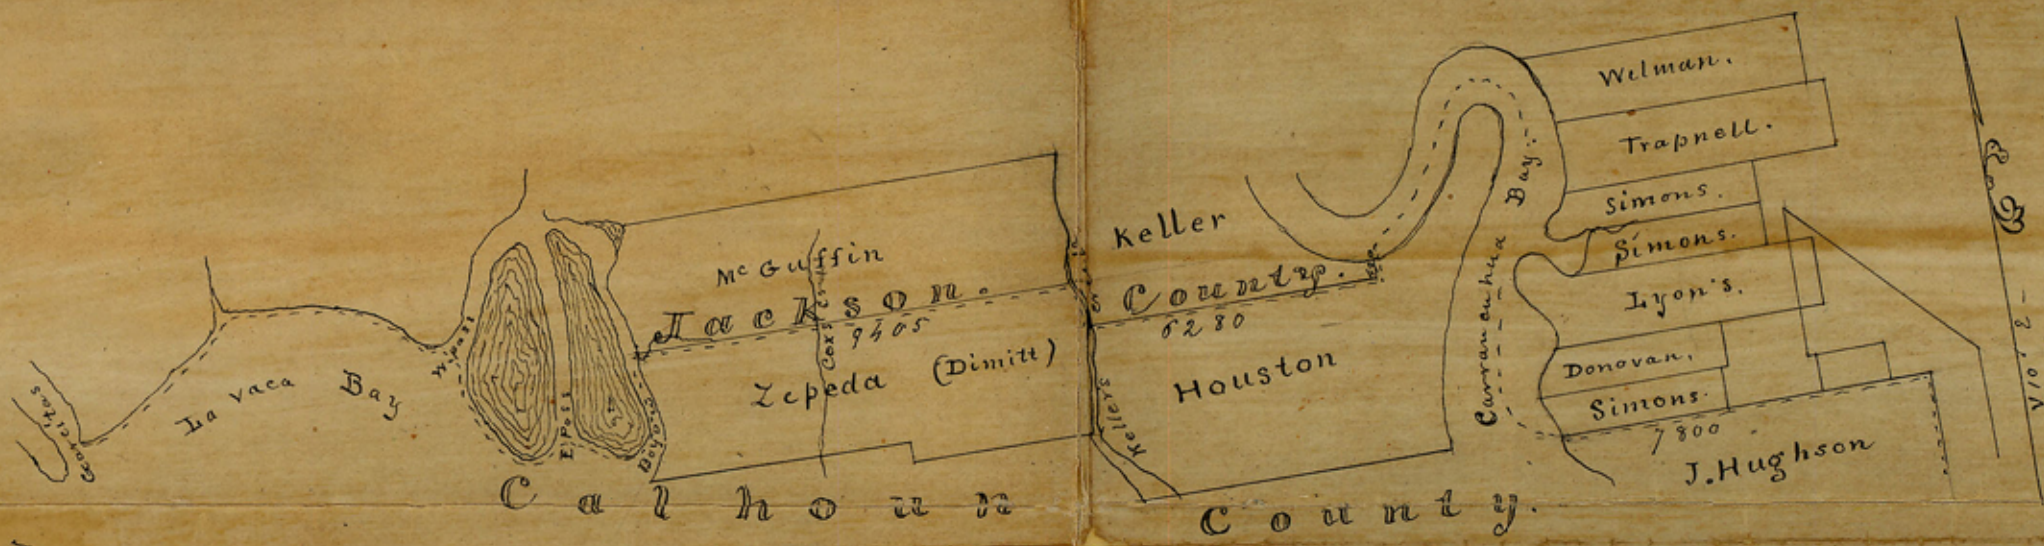 Garcitas
La Vaca Bay
W. Pass
E. Pass
Bayou
Mc Guffin
Jackson. County.
9405
Cox's
Zepeda (Dimitt)
Keller
Kellers
6280
Houston
Carrancahua Bay.
Welman.
Trapnell.
Simons.
Simons.
Lyon's.
Donovan.
Simons.
7800
J. Hughson
Calhoun County.